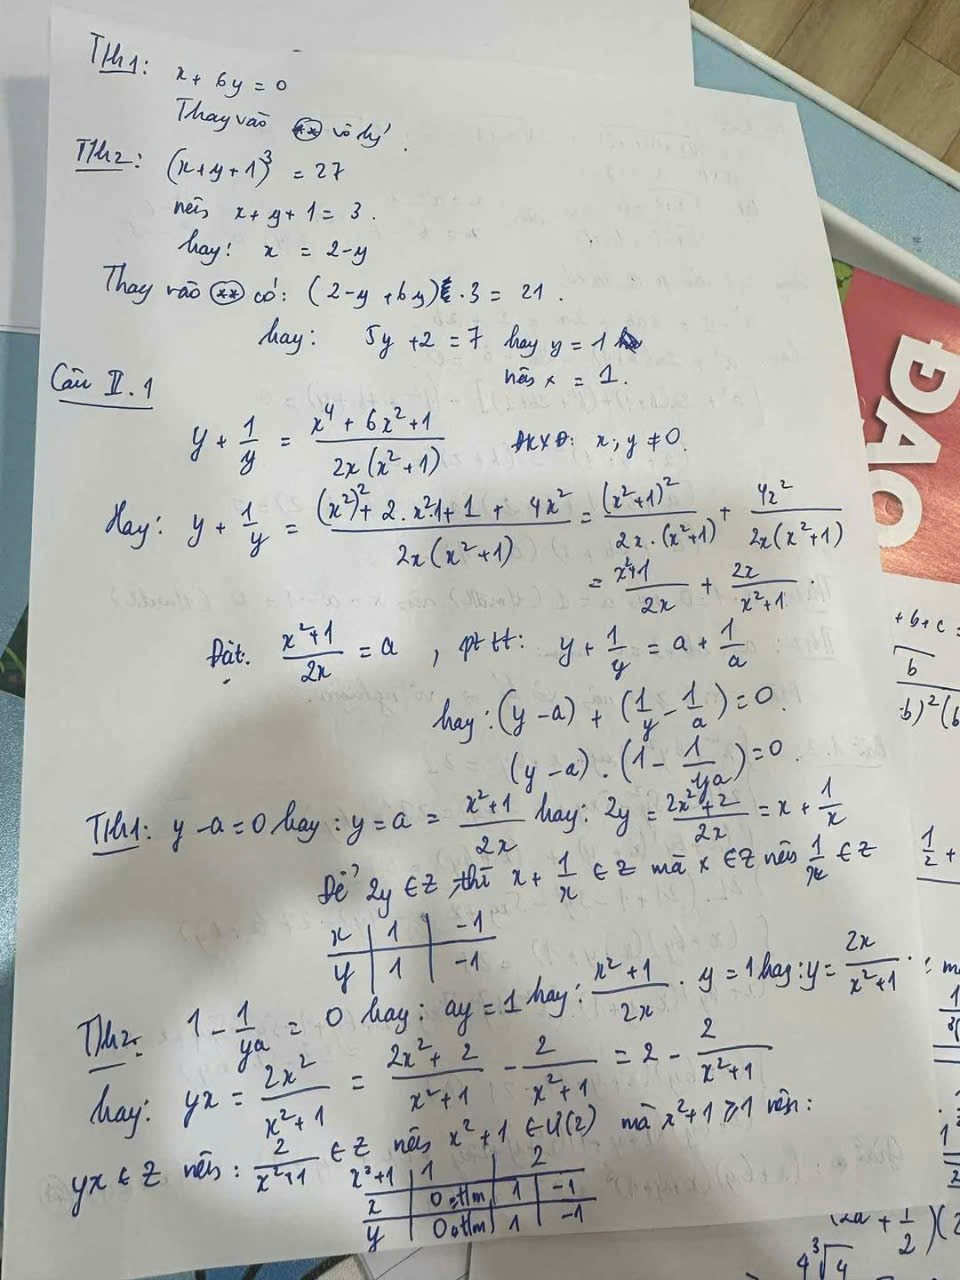 TH1: x + 6y = 0
Thay vào (**) vô lý.
TH2: (x+y+1)³ = 27
nên x+y+1 = 3.
hay: x = 2-y
Thay vào (**) có: (2-y+6y) . 3 = 21.
hay: 5y + 2 = 7 hay y = 1
nên x = 1.
Câu II.1
y + 1/y = (x⁴ + 6x² + 1)/(2x(x²+1)) ĐKXĐ: x; y ≠ 0.
Hay: y + 1/y = ((x²)² + 2.x².1 + 1 + 4x²)/(2x(x²+1)) = (x²+1)²/(2x.(x²+1)) + 4x²/(2x(x²+1))
= (x²+1)/2x + 2x/(x²+1).
Đặt. (x²+1)/2x = a, pt tt: y + 1/y = a + 1/a
hay: (y-a) + (1/y - 1/a) = 0.
(y-a).(1 - 1/ya) = 0.
TH1: y-a=0 hay: y=a = (x²+1)/2x hay: 2y = (2x²+2)/2x = x + 1/x
Để 2y ∈ Z thì x + 1/x ∈ Z mà x ∈ Z nên 1/x ∈ Z
x | 1 | -1
y | 1 | -1
TH2: 1 - 1/ya = 0 hay: ay = 1 hay: (x²+1)/2x . y = 1 hay: y = 2x/(x²+1).
hay: yx = 2x²/(x²+1) = (2x²+2)/(x²+1) - 2/(x²+1) = 2 - 2/(x²+1)
yx ∈ Z nên: 2/(x²+1) ∈ Z nên x²+1 ∈ Ư(2) mà x²+1 ⩾ 1 nên:
x²+1 | 1 | 2
x | 0 | 1 | -1
y | 0 | 1 | -1
ĐÀO
+ b + c =
1/2 +
(2a + 1/2)(2
4∛4